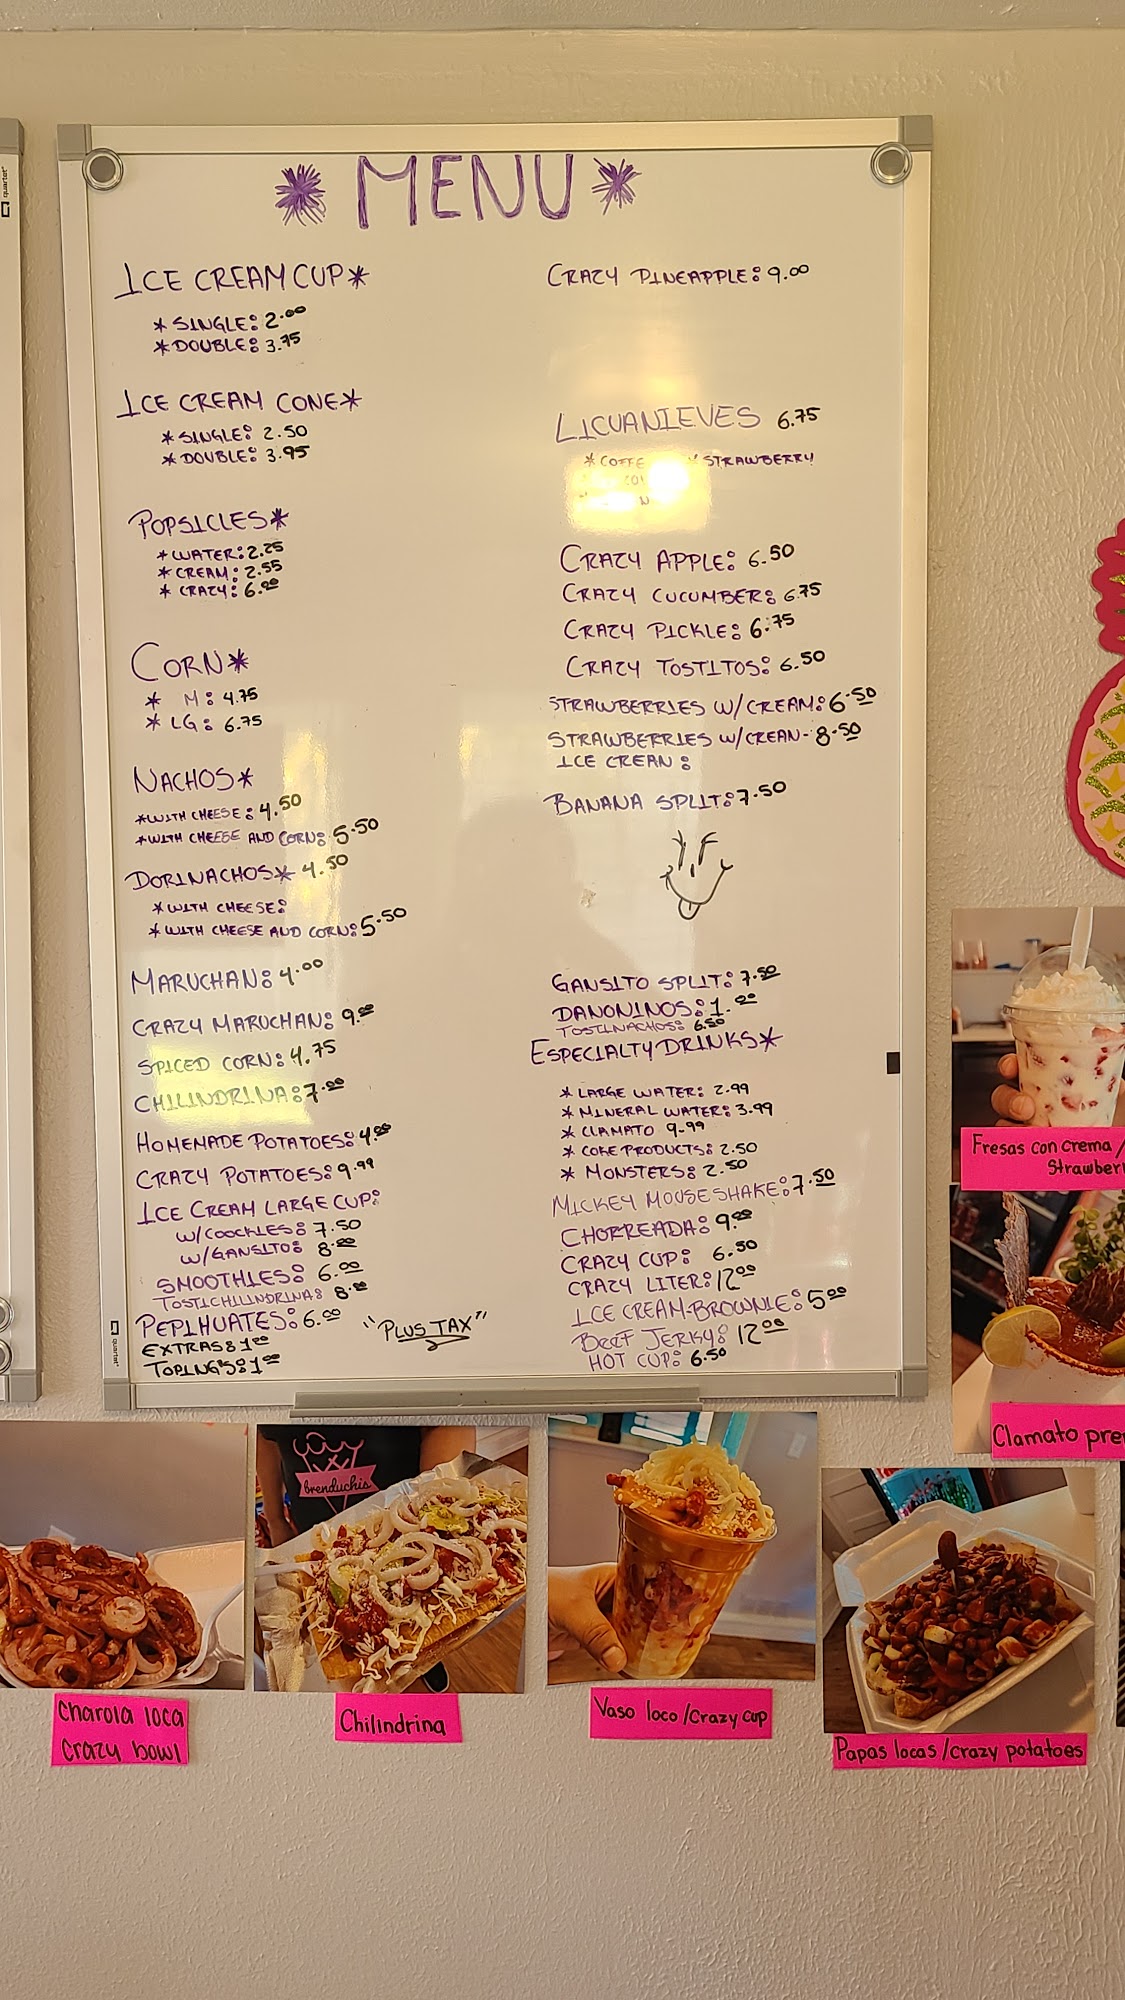 * MENU *
ICE CREAM CUP *
* SINGLE: 2.00
* DOUBLE: 3.75
ICE CREAM CONE *
* SINGLE: 2.50
* DOUBLE: 3.95
POPSICLES *
* WATER: 2.25
* CREAM: 2.55
* CRAZY: 6.00
CORN *
* M: 4.75
* LG: 6.75
NACHOS *
* WITH CHEESE: 4.50
* WITH CHEESE AND CORN: 5.50
DORINACHOS * 4.50
* WITH CHEESE:
* WITH CHEESE AND CORN: 5.50
MARUCHAN: 4.00
CRAZY MARUCHAN: 9.00
SPICED CORN: 4.75
CHILINDRINA: 7.00
HOMEMADE POTATOES: 4.00
CRAZY POTATOES: 9.99
ICE CREAM LARGE CUP:
W/COOCKIES: 7.50
W/GANSITO: 8.00
SMOOTHIES: 6.00
TOSTICHILINDRINA: 8.00
PEPIHUATES: 6.00
EXTRAS: 1.00
TOPINGS: 1.00
"PLUS TAX"
CRAZY PINEAPPLE: 9.00
LICUANIEVES 6.75
* STRAWBERRY
CRAZY APPLE: 6.50
CRAZY CUCUMBER: 6.75
CRAZY PICKLE: 6.75
CRAZY TOSTITOS: 6.50
STRAWBERRIES W/CREAM: 6.50
STRAWBERRIES W/CREAN- 8.50
ICE CREAN:
BANANA SPLIT: 7.50
GANSITO SPLIT: 7.50
DANONINOS: 1.00
TOSTINACHOS: 6.50
ESPECIALTY DRINKS *
* LARGE WATER: 2.99
* MINERAL WATER: 3.99
* CLAMATO 9.99
* COKE PRODUCTS: 2.50
* MONSTERS: 2.50
MICKEY MOUSE SHAKE: 7.50
CHORREADA: 9.00
CRAZY CUP: 6.50
CRAZY LITER: 12.00
ICE CREAM-BROWNIE: 5.00
BEEF JERKY: 12.00
HOT CUP: 6.50
quartet
quartet
Fresas con crema /
Clamato
brenduchis
Charola loca
Crazy bowl
Chilindrina
Vaso loco /Crazy cup
Papas locas /crazy potatoes